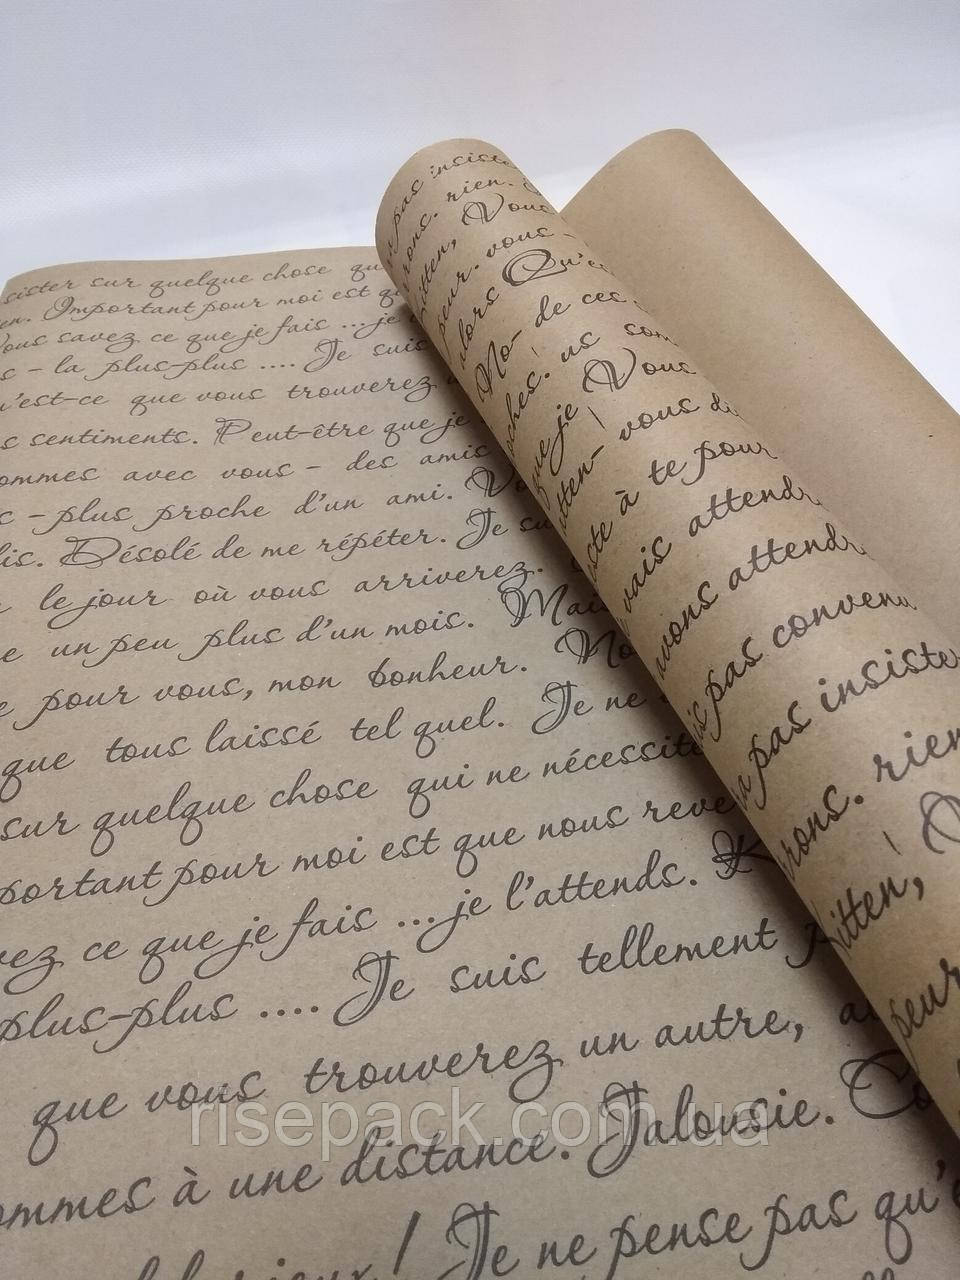 sister sur quelque chose qu
en. Important pour moi est qu
Vous savez ce que je fais ...je
s - la plus-plus .... Je suis
u'est-ce que vous trouverez
s sentiments. Peut-être que je
ommes avec vous - des amis
c - plus proche d'un ami. Vo
lis. Désolé de me répéter. Je su
le jour où vous arriverez.
e un peu plus d'un mois. Mais
e pour vous, mon bonheur. No
que tous laissé tel quel. Je ne
sur quelque chose qui ne nécessite
portant pour moi est que nous reve
vez ce que je fais ...je l'attends. K
plus-plus .... Je suis tellement
que vous trouverez un autre, a
ommes à une distance. Jalousie. Co
! Je ne pense pas qu'e
pas insiste
rons. rien.
itten, Vous
peur. vous -
alors Qu'es
No- de ces
oches. us som
que je Vous
itten- vous di
iste à te pour
vais attendr
avons attendr
is pas convenu
a pas insiste
rons. rien
itten,
peur
risepack.com.ua